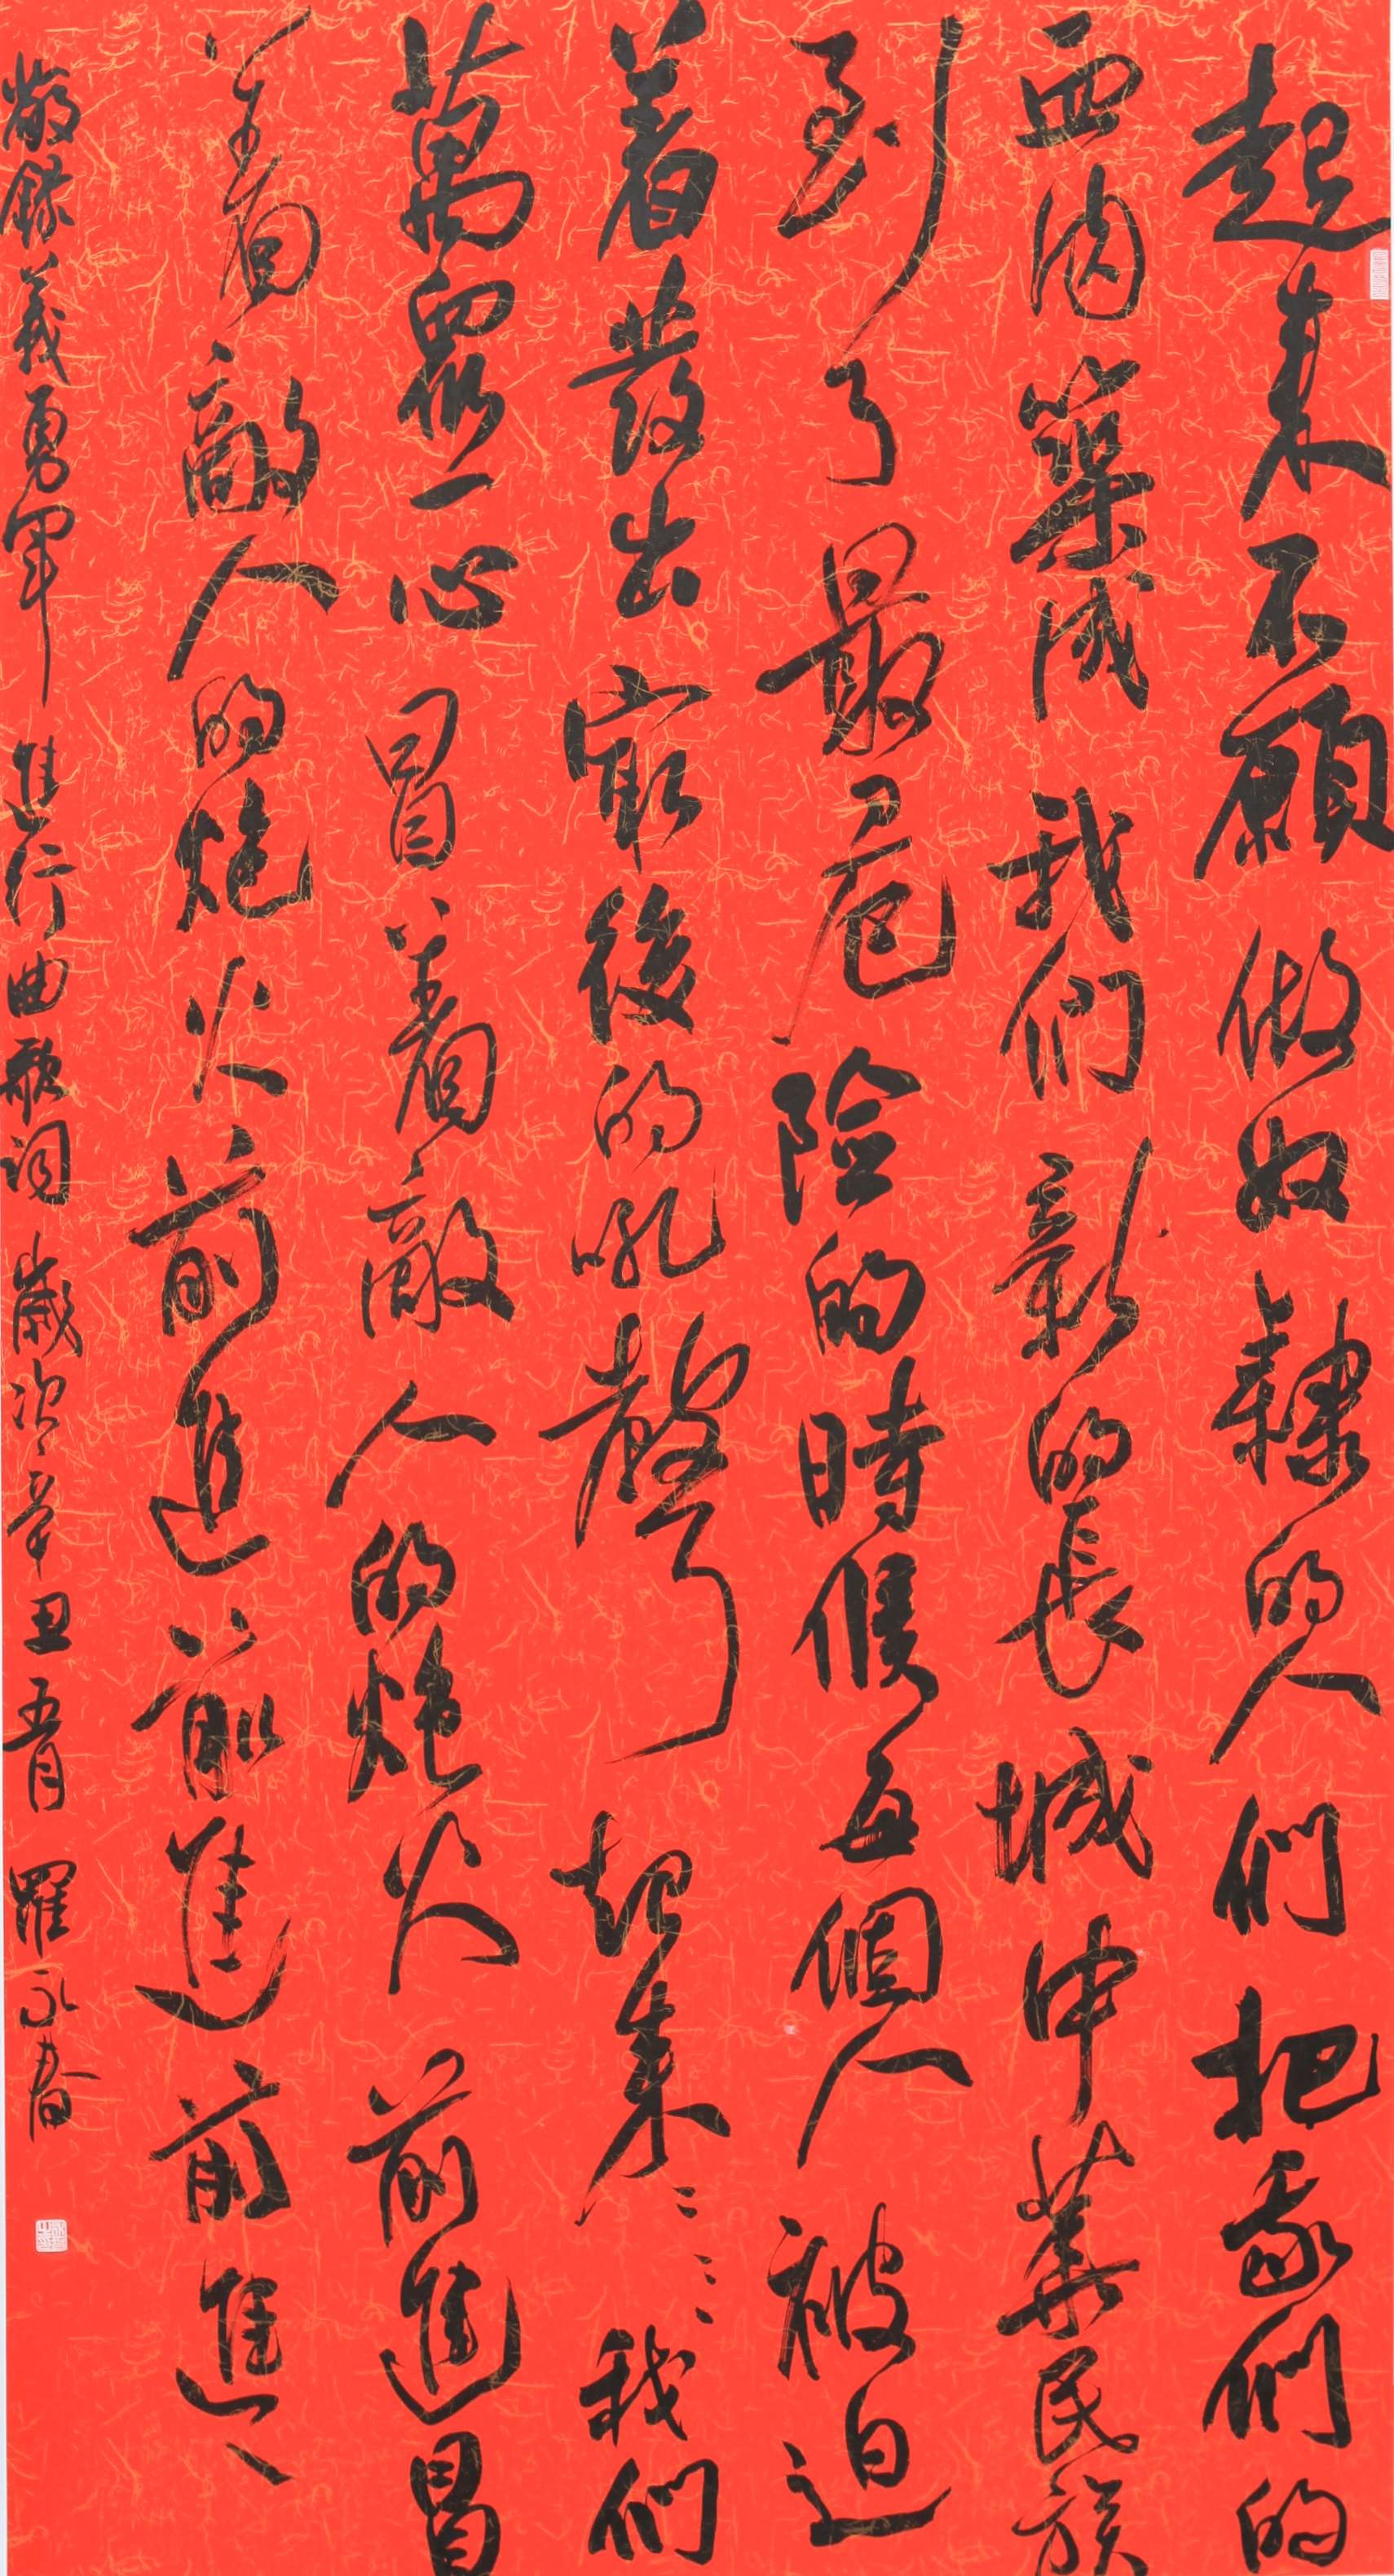 起来不願做奴隸的人們把我們的
血肉築成我們新的長城中華民族
到了最危險的時候每個人被迫
着發出最後的吼聲起来〻〻我們
萬眾一心冒着敵人的炮火前進冒
着敵人的炮火前進前進前進〻
敬錄義勇軍進行曲歌詞歲次辛丑五月羅永春